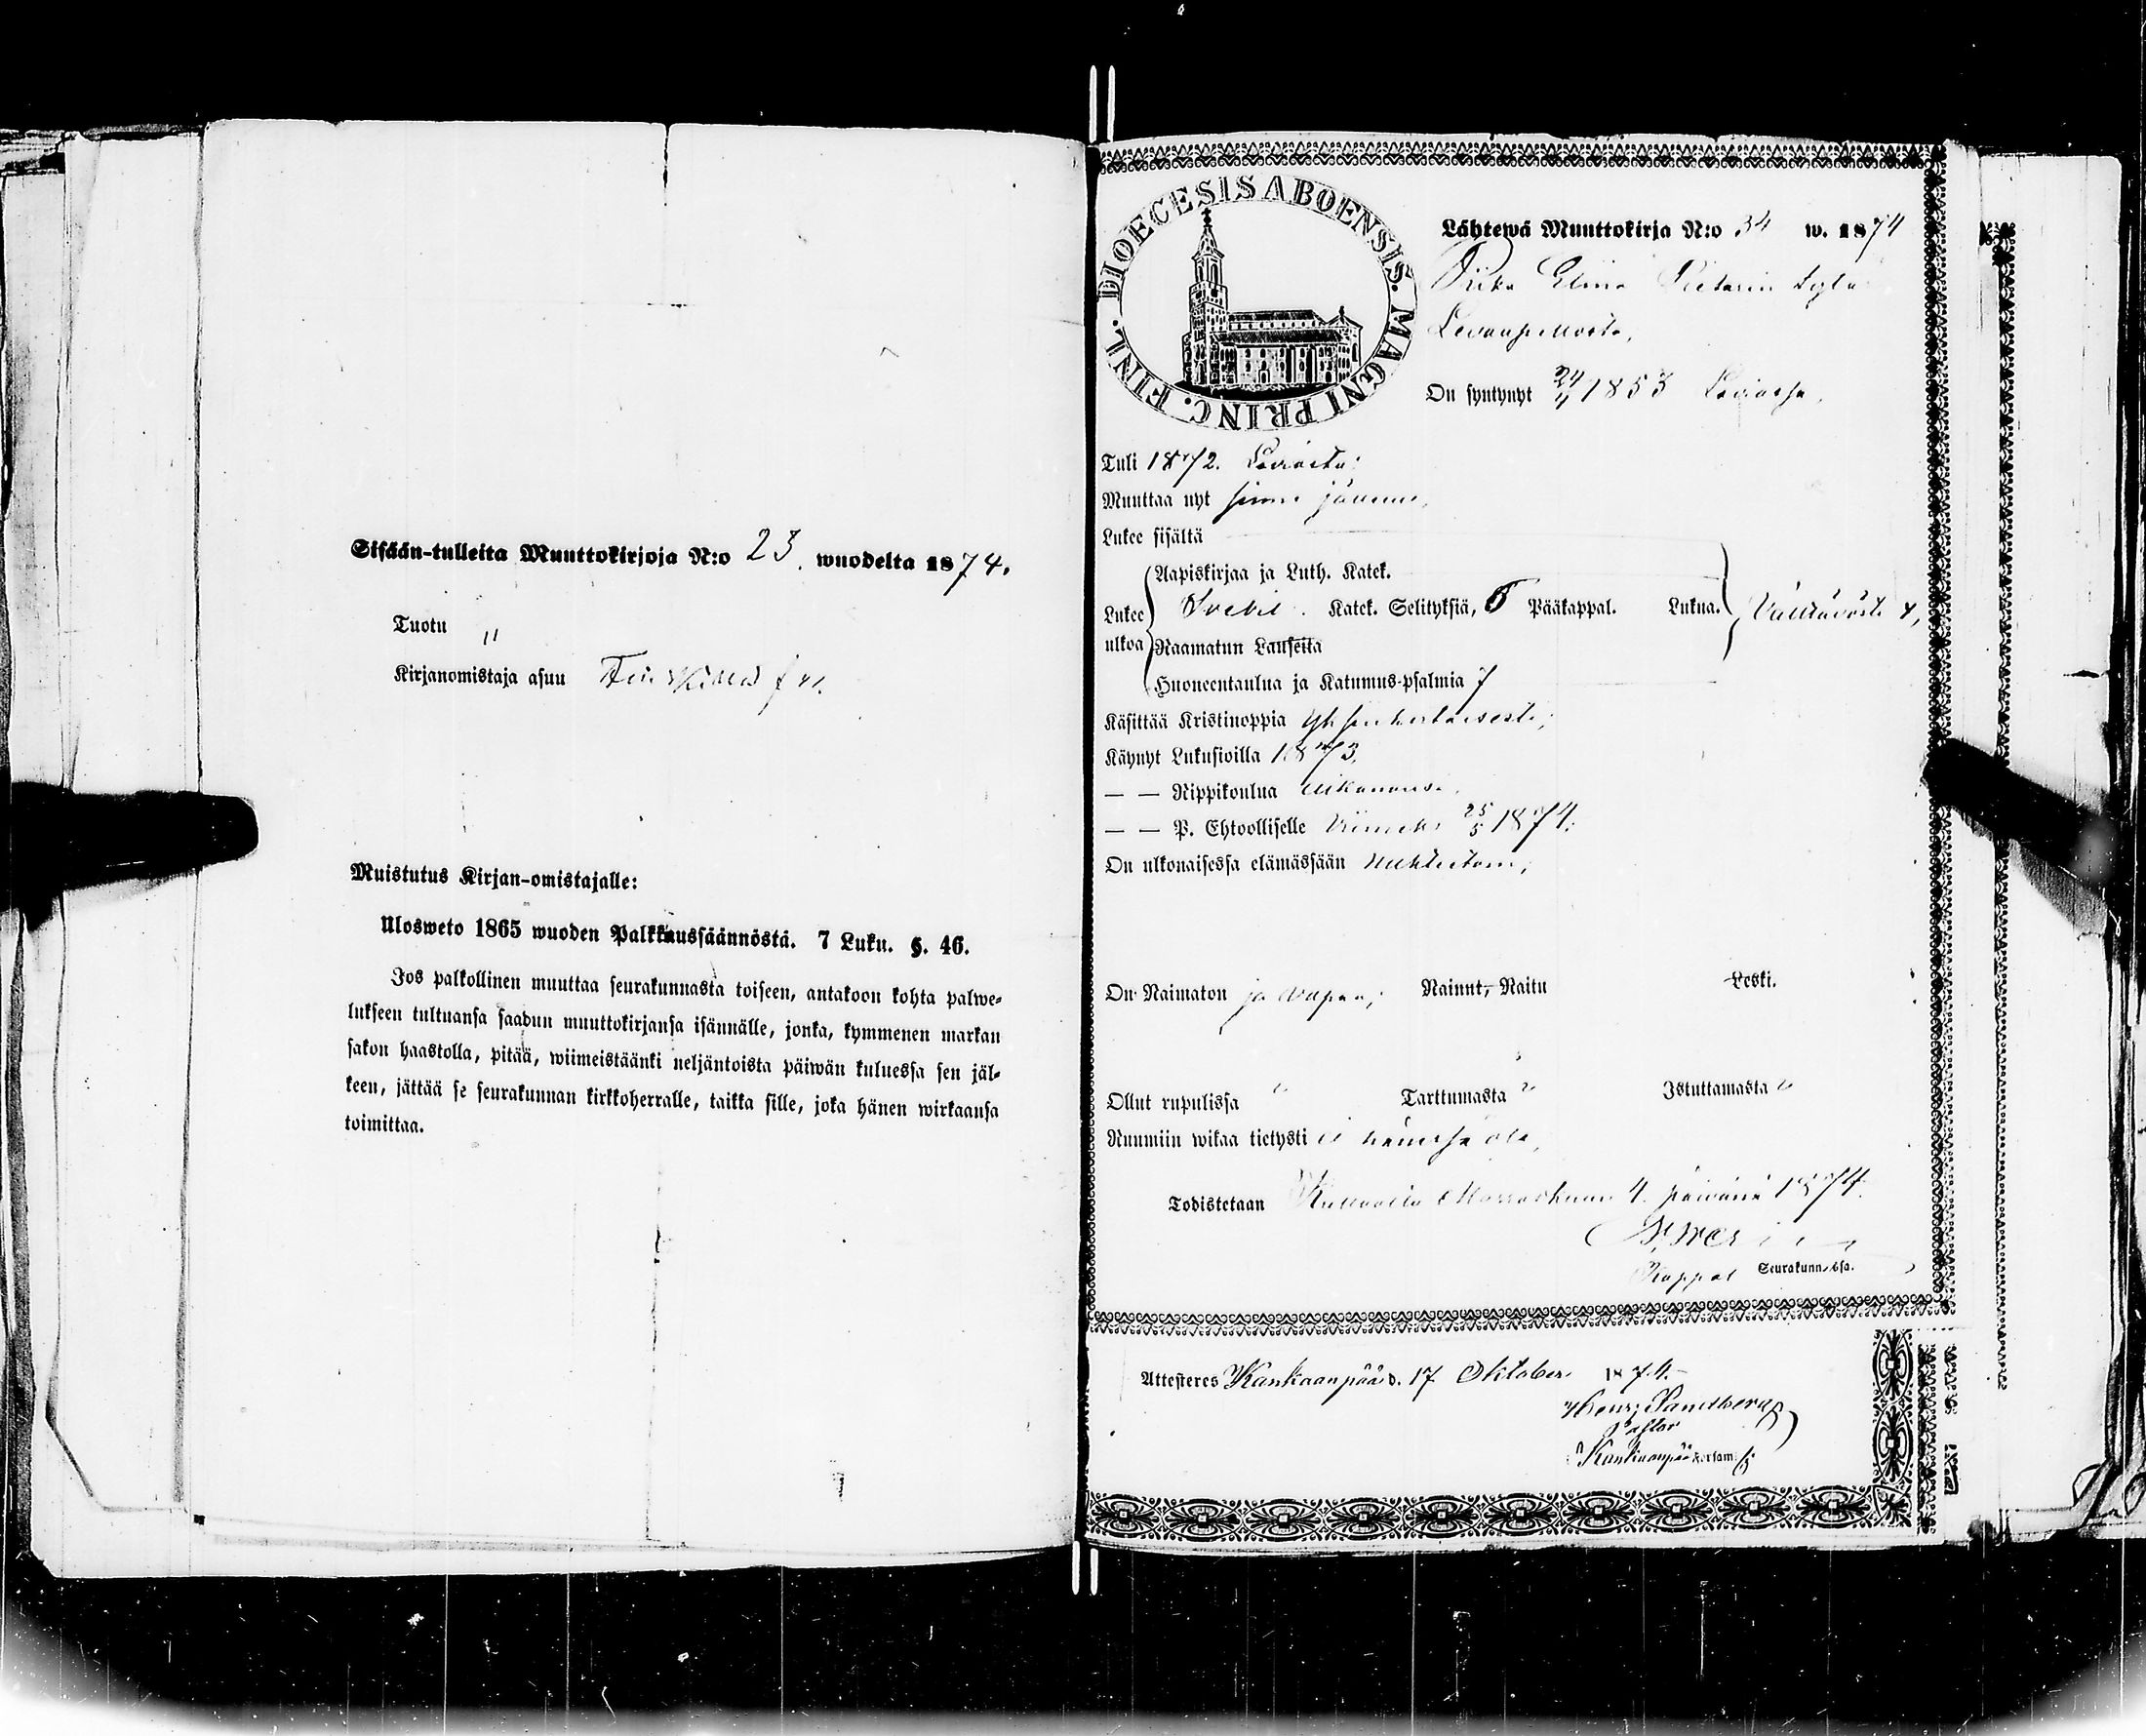 Sisään-tulleita Muuttokirjoja N:o 23. wuodelta 1874.
Tuotu "
Kirjanomistaja asuu
Muistutus Kirjan-omistajalle:
Ulosweto 1865 wuoden Palkkaussäännöstä. 7 Luku. §. 46.
Jos palkollinen muuttaa seurakunnasta toiseen, antakoon kohta palwe-
lukseen tultuansa saadun muuttokirjansa isännälle, jonka, kymmenen markan
sakon haastolla, pitää, wiimeistäänki neljäntoista päiwän kuluessa sen jäl-
keen, jättää se seurakunnan kirkkoherralle, taikka sille, joka hänen wirkaansa
toimittaa.
DIOECESIS ABOENSIS. MAGNI PRINC. FINL.
Lähtewä Muuttokirja N:o 34 w. 1874
Elina Pietarin
On syntynyt 1853 Laviassa,
Tuli 1872. Laviasta;
Muuttaa nyt sinne jällens,
Lukee sisältä
Aapiskirjaa ja Luth. Katek.
Lukee Svebil. Katek. Selityksiä, 5 Pääkappal. Lukua. Välttävästi
ulkoa Raamatun Lauseita
Huoneentaulua ja Katumus-psalmia 7
Käsittää Kristinoppia yksinkertaisesti;
Käynyt Lukusioilla 1873,
— — Rippikoulua aikanansa,
— — P. Ehtoolliselle viimeks 25/5 1874;
On ulkonaisessa elämässään nuhteetoin;
On Naimaton ja vapaa; Nainut, Naitu Leski.
Ollut rupulissa " Tarttumasta " Istuttamasta "
Ruumiin wikaa tietysti ei hänessä ole,
Todistetaan Marraskuun 4. päivänä 1874.
Kappal Seurakunnassa.
Attesteres Kankaanpää d. 17 Oktober 1874.
Henr. Sandberg
Pastor
Kankaanpää Församl: